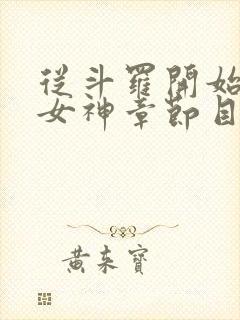 從斗羅開始
女神章節目
黃來寶